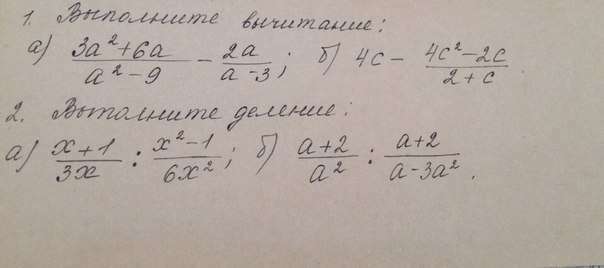 1. Выполните вычитание:
а) (3a² + 6a)/(a² − 9) − 2a/(a − 3); б) 4c − (4c² − 2c)/(2 + c)
2. Выполните деление:
а) (x + 1)/(3x) : (x² − 1)/(6x²); б) (a + 2)/a² : (a + 2)/(a − 3a²).